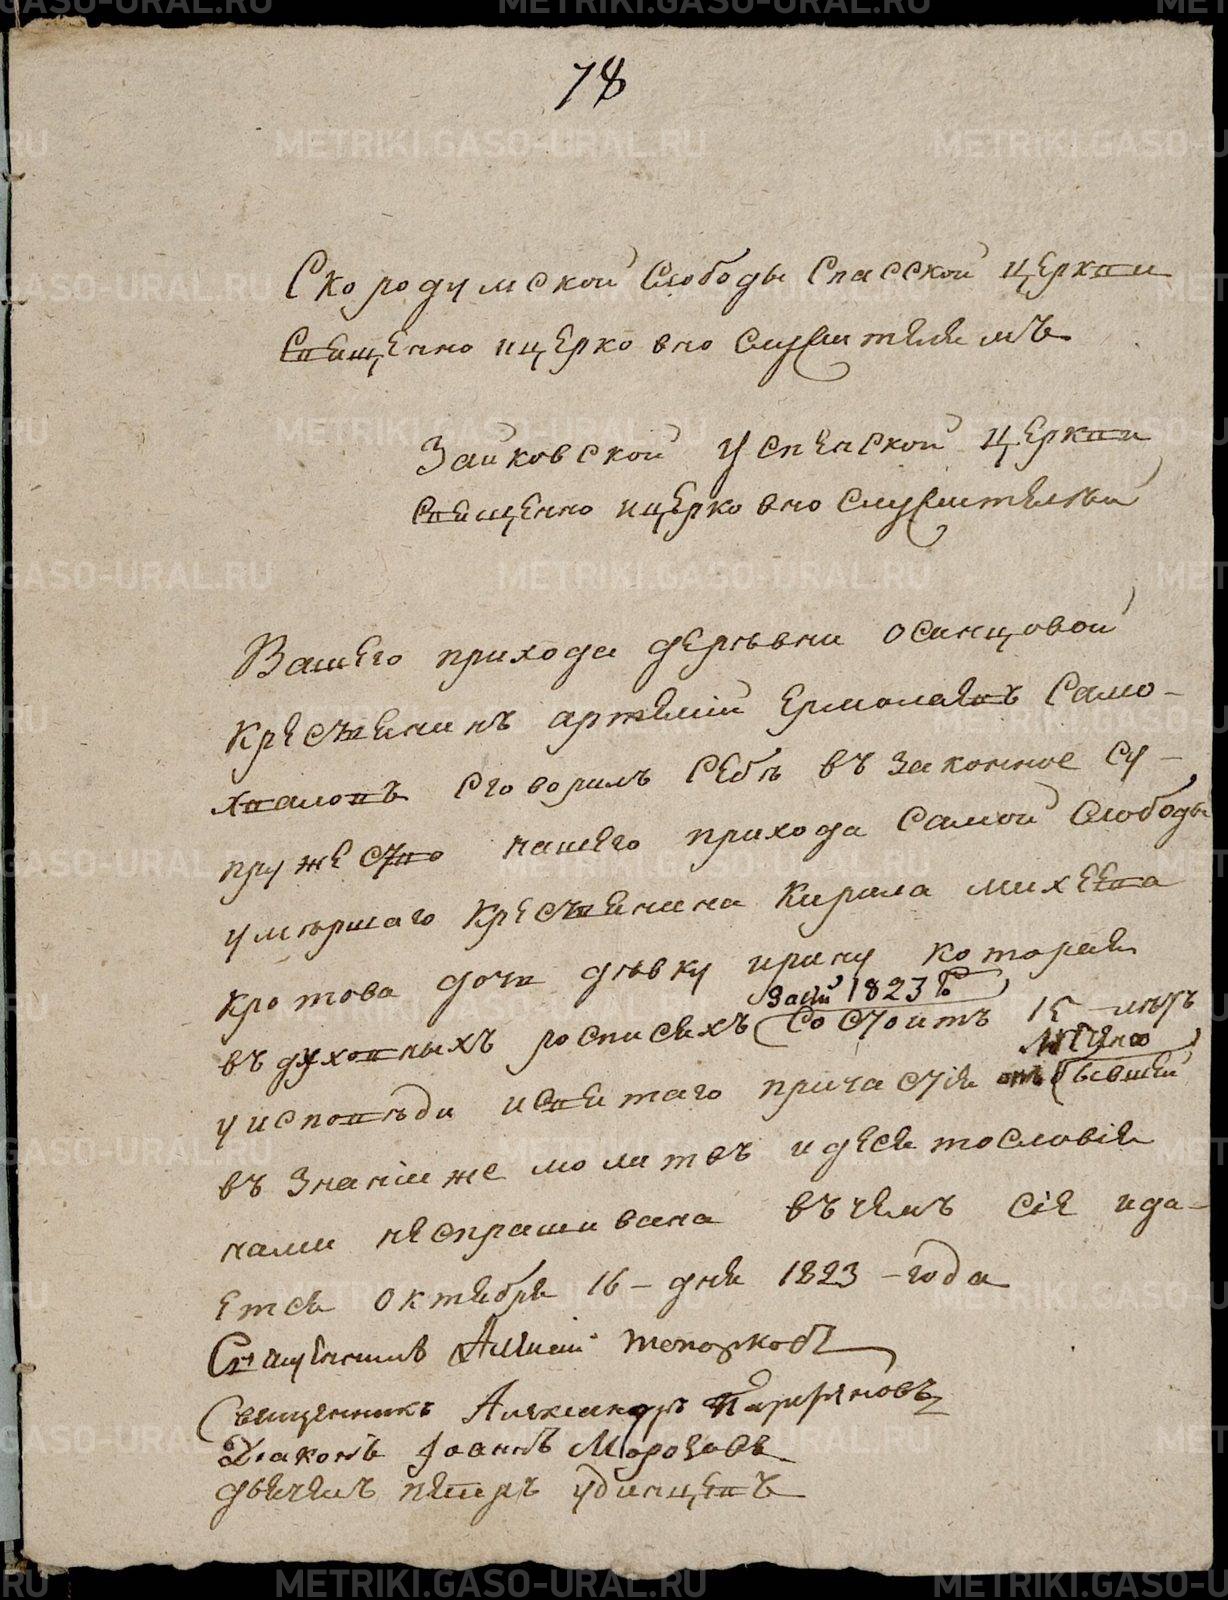 78
Скородумской Слободы Спасской церкви
Священно ицерковно служителямъ
Зайковской Успенской церкви
Священно ицерковно служителей
Вашего прихода дерѣвни осинцовой
крестьянинъ артемій Ермолаевъ Само-
хваловъ сговорилъ себѣ въ законное су-
пружество нашего прихода самой слободы
умѣршаго крестьянина Кирила михеева
кротова дочь дѣвку ирину которая
въ духовныхъ росписяхъ состоитъ 15 -лѣтъ
за сей 1823 г
уисповѣди исвятаго причастія бывшей
въ знаніи же молитвъ идесятословія
нами неспрашивана въчемъ сіе ида-
ется октября 16 - дня 1823 -года
Священникъ Топорковъ
Священникъ Александръ Парфеновъ
Діаконъ Іоаннъ Морозовъ
дьячекъ петръ удинцевъ
METRIKI.GASO-URAL.RU